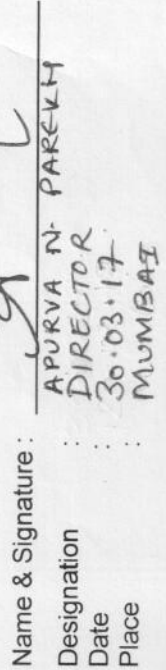 Name & Signature :
APURVA N. PAREKH
Designation : DIRECTOR
Date : 30.03.17
Place : MUMBAI